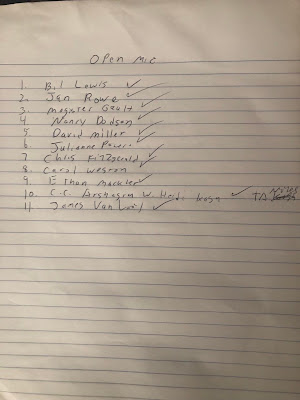 Open mic
1. Bil Lewis ✓
2. Jen Rowe ✓
3. Magister Gault ✓
4 Nancy Dodson ✓
5 David Miller ✓
6 Julianne Power ✓
7 Chris Fitzgerald ✓
8. Carol Weston
9. Ethan Mackler ✓
10. C.C. Arshagra W. ✓ TA
11 James Van ✓